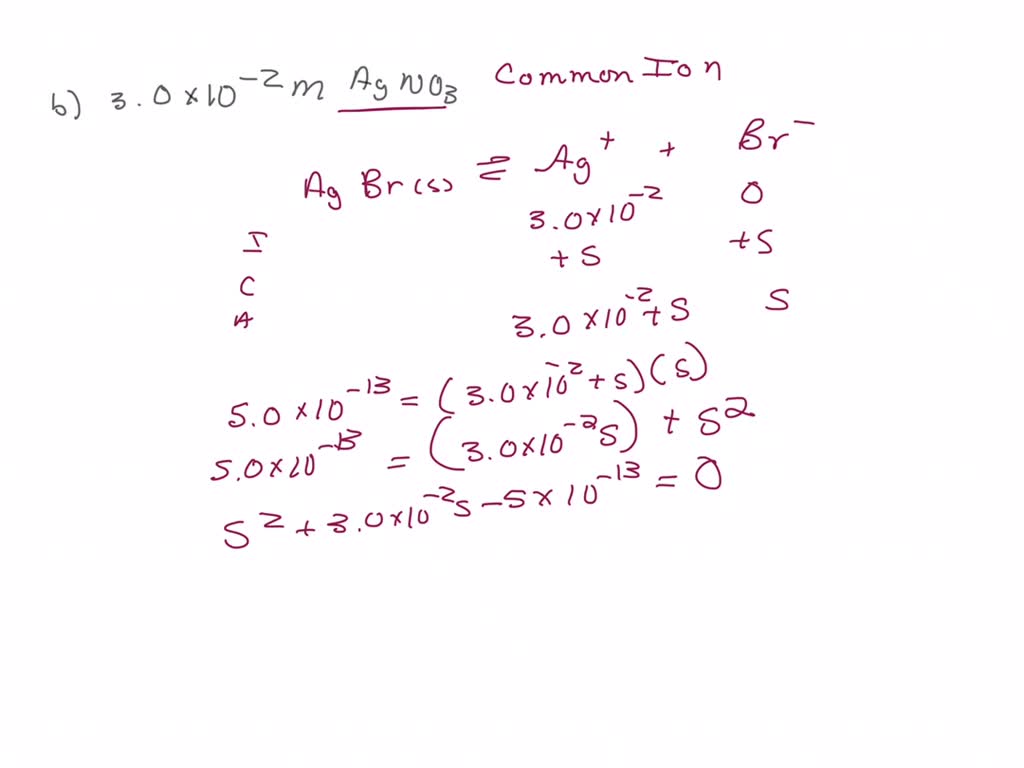 b) 3.0 × 10⁻² m AgNO₃ Common Ion
AgBr(s) ⇌ Ag⁺ + Br⁻
I 3.0×10⁻² 0
C +S +S
A 3.0×10⁻²+S S
5.0×10⁻¹³ = (3.0×10⁻²+s)(s)
5.0×10⁻¹³ = (3.0×10⁻²S) + S²
S² + 3.0×10⁻²S – 5×10⁻¹³ = 0